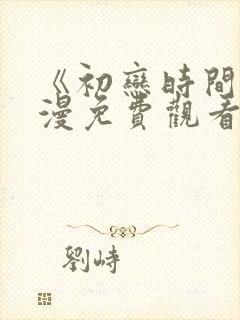 《初戀時間
漫免費觀看
劉峙